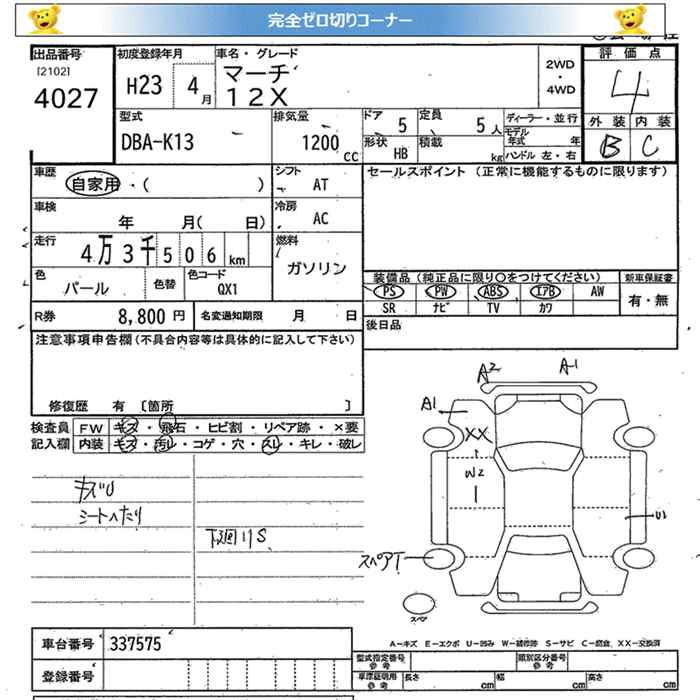 完全ゼロ切りコーナー
出品番号
[2102]
4027
初度登録年月
H23 4月
車名・グレード
マーチ
12X
2WD
・
4WD
評価点
4
外装 内装
B C
型式
DBA-K13
排気量
1200 CC
ドア 5
定員 5人
形状 HB
積載 kg
ディーラー・並行
モデル年式 年
ハンドル 左・右
車歴
自家用・( )
シフト
AT
車検
年 月( 日)
冷房
AC
走行
4万3千506km
燃料
ガソリン
色
パール
色替
色コード
QX1
R券 8,800円
名変通知期限 月 日
セールスポイント (正常に機能するものに限ります)
装備品(純正品に限り〇をつけてください)
PS PW ABS エアB AW
SR ナビ TV カワ
新車保証書
有・無
後日品
注意事項申告欄(不具合内容等は具体的に記入して下さい)
修復歴 有 〔箇所 〕
検査員 FW キズ・飛石・ヒビ割・リペア跡・×要
記入欄 内装 キズ・汚レ・コゲ・穴・スレ・キレ・破レ
キズU
シートヘたり
下廻りS
A2 A-1
A1
XX
W2
U1
スペアT
スペア
車台番号 337575
登録番号
A-キズ E-エクボ U-凹み W-補修跡 S-サビ C-腐食、XX-交換済
型式指定番号
参考
類別区分番号
参考
車庫証明用
参考
長さ cm 幅 cm 高さ cm